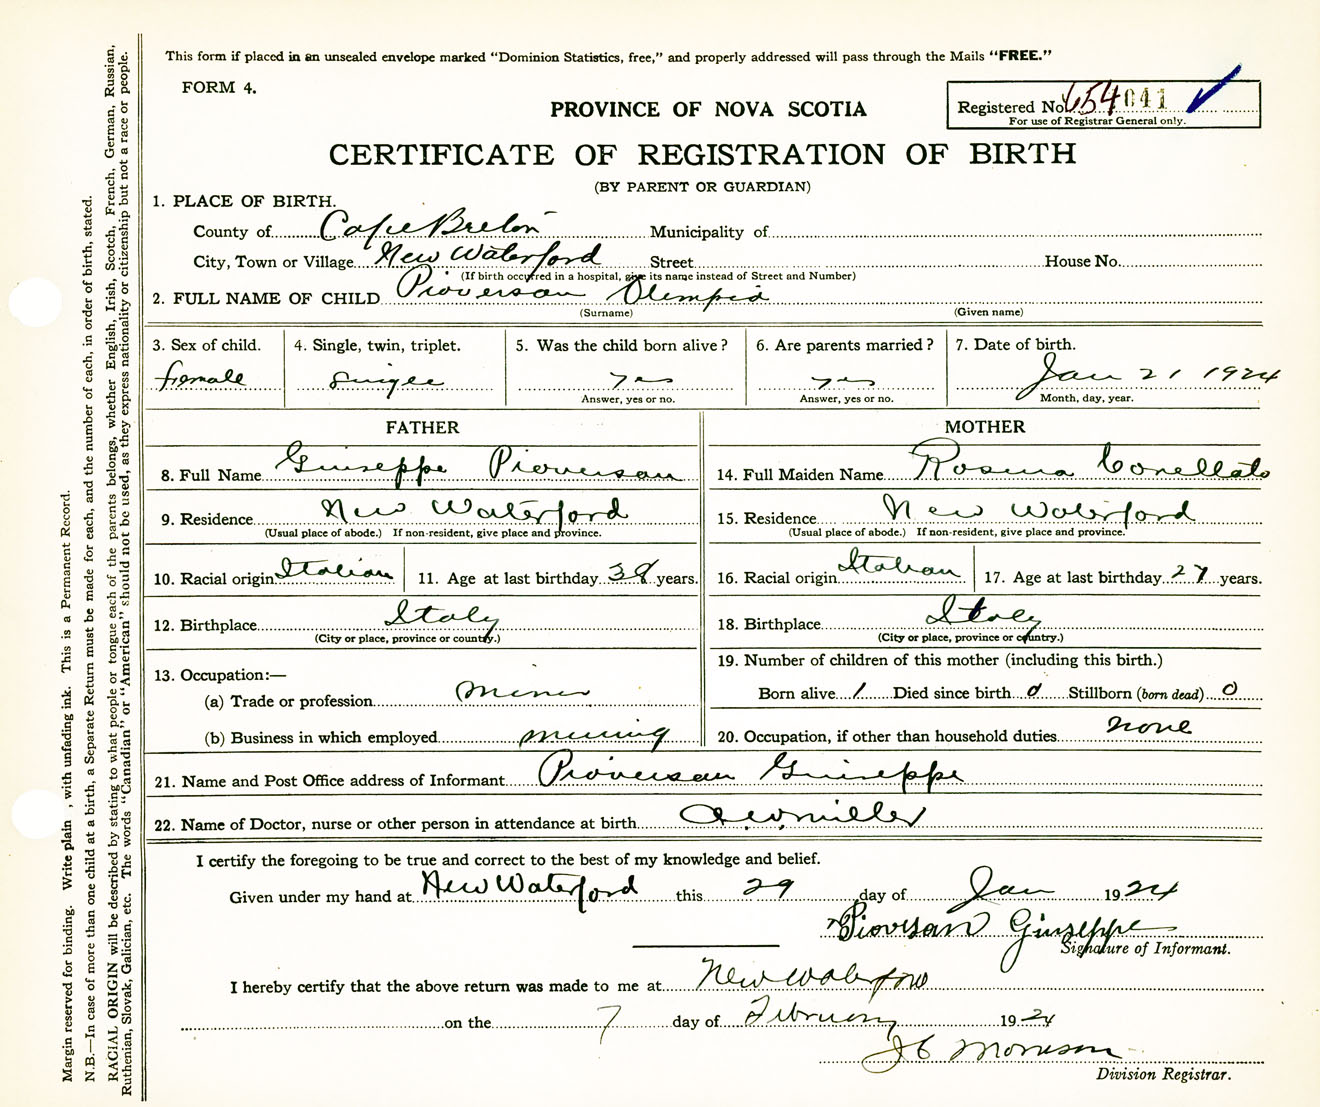 This form if placed in an unsealed envelope marked "Dominion Statistics, free," and properly addressed will pass through the Mails "FREE."
FORM 4.
Registered No. 654041
For use of Registrar General only.
PROVINCE OF NOVA SCOTIA
CERTIFICATE OF REGISTRATION OF BIRTH
(BY PARENT OR GUARDIAN)
1. PLACE OF BIRTH.
County of Cape Breton Municipality of
City, Town or Village New Waterford Street House No.
(If birth occurred in a hospital, give its name instead of Street and Number)
2. FULL NAME OF CHILD Pioversan Olempia
(Surname) (Given name)
3. Sex of child. 4. Single, twin, triplet. 5. Was the child born alive? 6. Are parents married? 7. Date of birth.
female single yes yes Jan 21 1924
Answer, yes or no. Answer, yes or no. Month, day, year.
FATHER MOTHER
8. Full Name Giuseppe Pioversan 14. Full Maiden Name Rosina Conellato
9. Residence New Waterford 15. Residence New Waterford
(Usual place of abode.) If non-resident, give place and province. (Usual place of abode.) If non-resident, give place and province.
10. Racial origin Italian 11. Age at last birthday 38 years. 16. Racial origin Italian 17. Age at last birthday 27 years.
12. Birthplace Italy 18. Birthplace Italy
(City or place, province or country.) (City or place, province or country.)
13. Occupation:—
(a) Trade or profession miner
(b) Business in which employed mining
19. Number of children of this mother (including this birth.)
Born alive 1 Died since birth 0 Stillborn (born dead) 0
20. Occupation, if other than household duties none
21. Name and Post Office address of Informant Pioversan Giuseppe
22. Name of Doctor, nurse or other person in attendance at birth miller
I certify the foregoing to be true and correct to the best of my knowledge and belief.
Given under my hand at New Waterford this 29 day of Jan 1924
Piovesan Giuseppe
Signature of Informant.
I hereby certify that the above return was made to me at New Waterford
on the 7 day of February 1924
J C Morrison
Division Registrar.
Margin reserved for binding. Write plain , with unfading ink. This is a Permanent Record.
N.B.—In case of more than one child at a birth, a Separate Return must be made for each, and the number of each, in order of birth, stated.
RACIAL ORIGIN will be described by stating to what people or tongue each of the parents belongs, whether English, Irish, Scotch, French, German, Russian,
Ruthenian, Slovak, Galician, etc. The words "Canadian" or "American" should not be used, as they express nationality or citizenship but not a race or people.